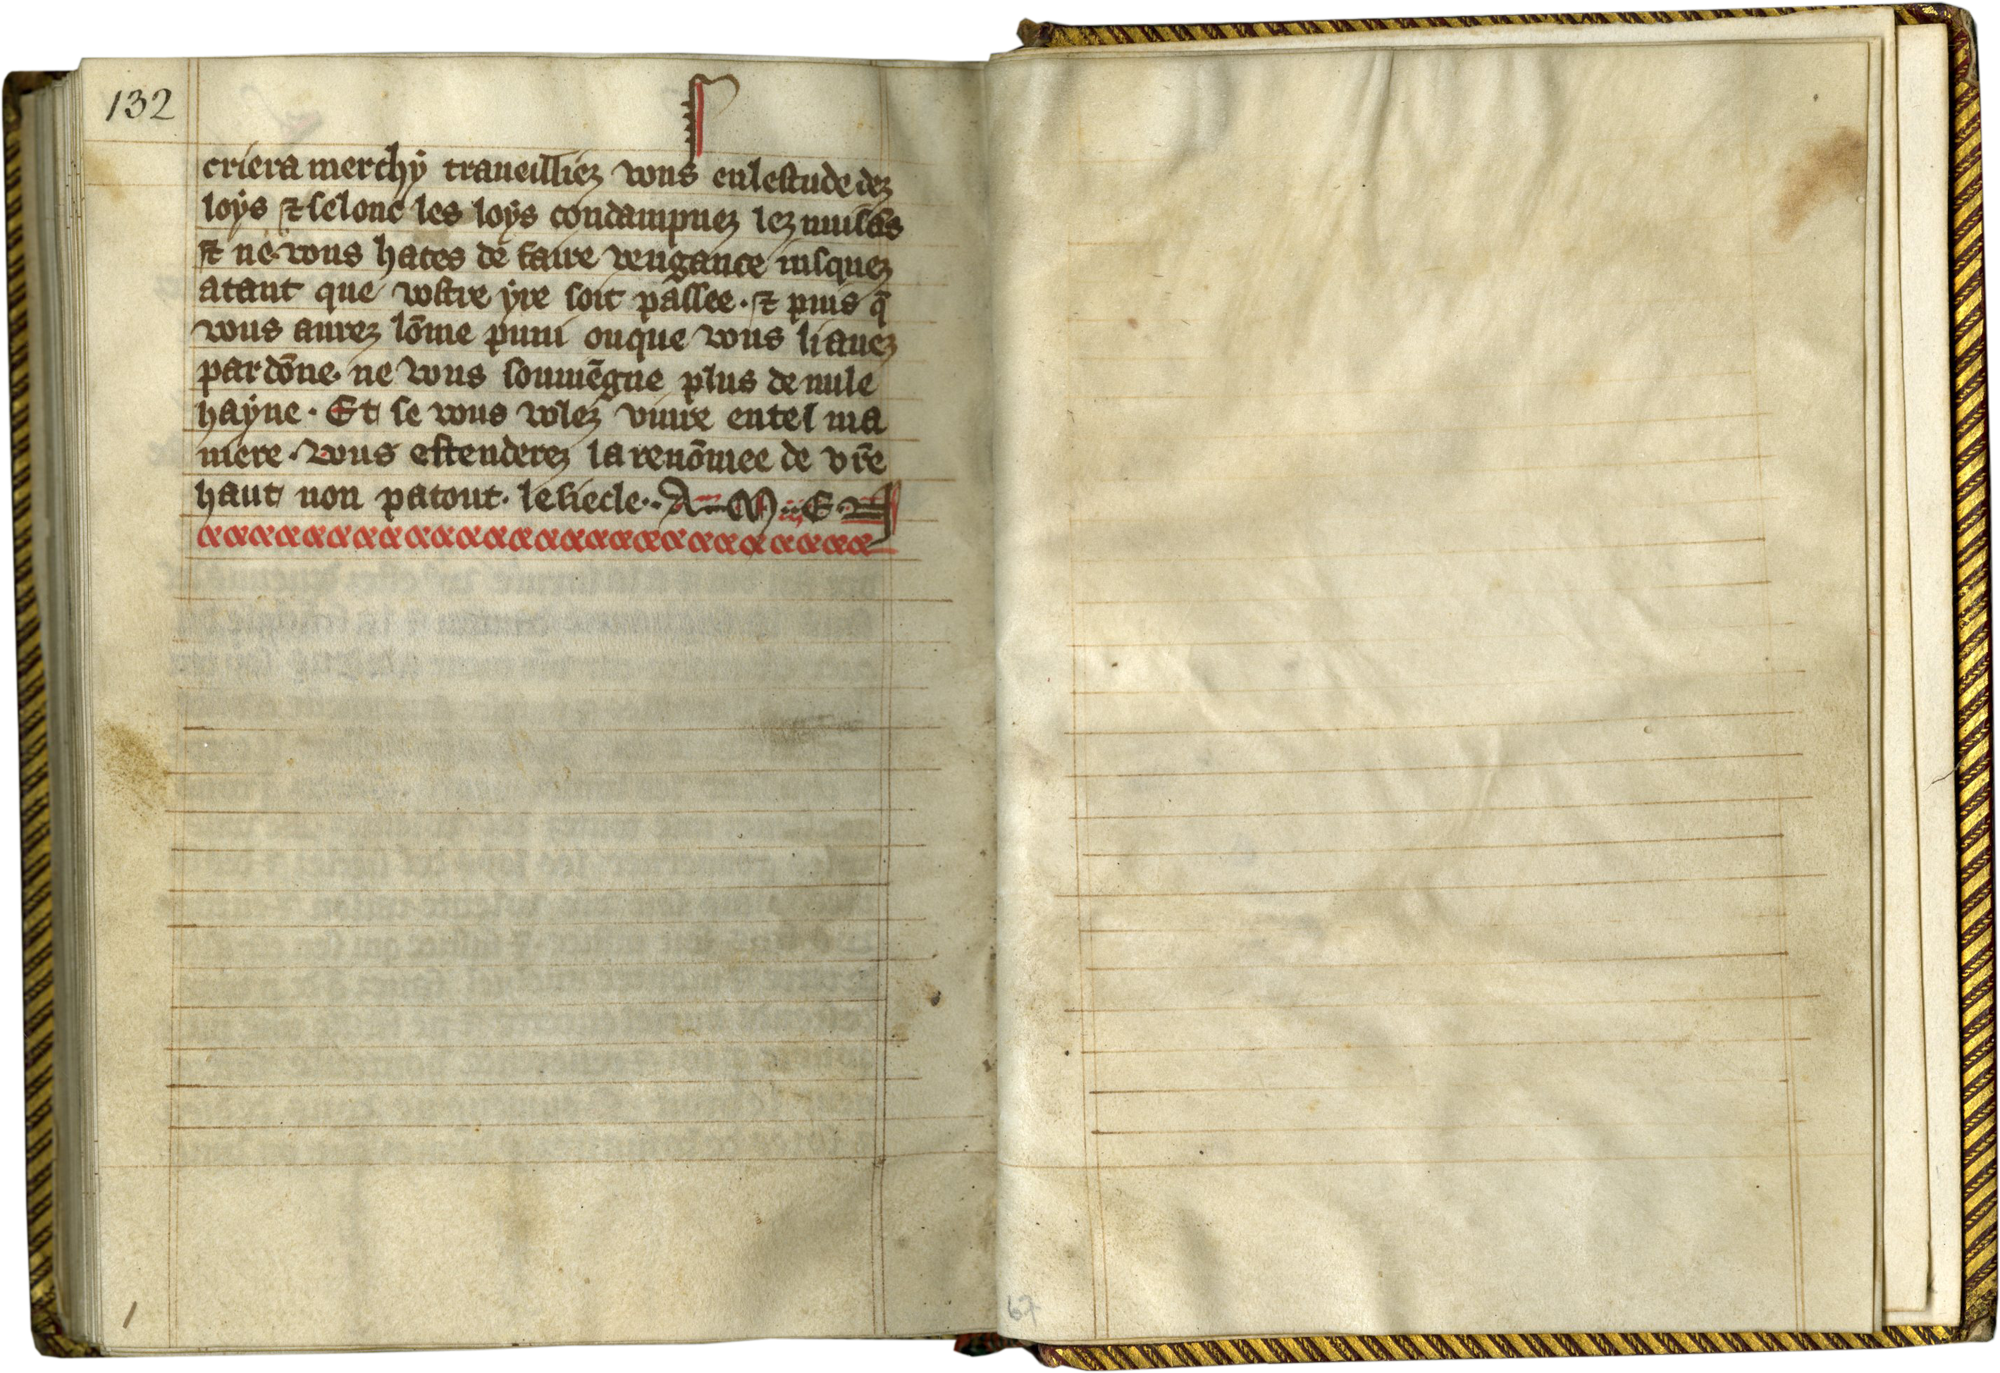 132
criera merchÿ traueilliez vous enlestude dez
loÿs ⁊ selonc les loÿs condampnez lez
⁊ ne vous hates de faire vengance iusquez
atant que vostre ÿre soit passee · ⁊ puis q̄
vous aurez lōme puni ouque vous li auez
pardōne · ne vous souuiēgne plus de nule
haÿne · Et se vous volez viure entel ma
niere · vous estenderez la renōmee de vr̄e
haut non patout · le siecle · A M E N
67